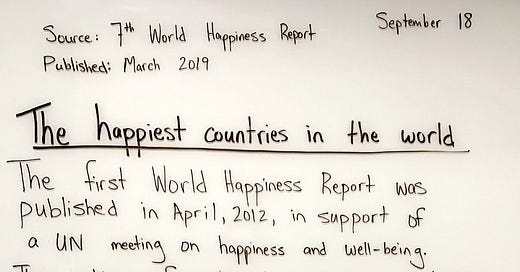 September 18
Source: 7th World Happiness Report
Published: March 2019
The happiest countries in the world
The first World Happiness Report was
published in April, 2012, in support of
a UN meeting on happiness and well-being.